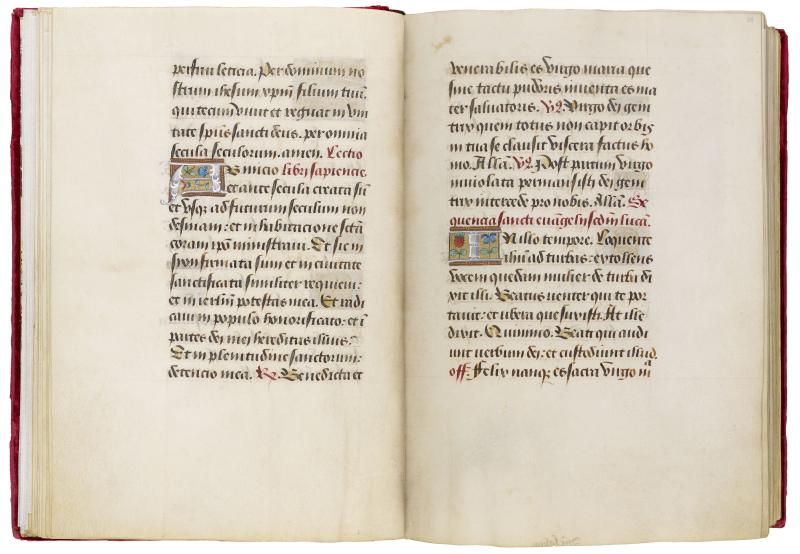 perfrui letitia. Per dominum no
strum ihesum xp̄m filium tuū.
qui tecum viuit et regnat in vni
tate sp̄us sancti deus. per omnia
secula seculorum. amen. Lectio
AB inicio libri sapiencie.
et ante secula creata sū
et vsq̄ ad futurum seculum non
desinam: et in habitacione sctā
coram ip̄o ministraui. Et sic in
syon firmata sum et in ciuitate
sanctificata similiter requieui:
et in ierl̄m potestas mea. Et radi
caui in populo honorificato: et ī
partes dei mei hereditas illius:
Et in plenitudine sanctorum:
detencio mea. R. Benedicta et
venerabilis es virgo maria que
sine tactu pudoris inuenta es ma
ter saluatoris. V. Virgo dei geni
trix quem totus non capit orbis
in tua se clausit viscera factus ho
mo. Alla. V. Post partum virgo
inuiolata permansisti dei geni
trix intercede pro nobis. Allā. Se
quencia sancti euāgelij secdm̄ lucā.
IN illo tempore. Loquente
ihū ad turbas: extollens
vocem quedam mulier de turba di
xit illi. Beatus venter qui te por
tauit: et ubera que suxisti. At ille
dixit. Quinimo. Beati qui audi
unt uerbum dei: et custodiunt illud.
off. Felix nanqȝ es sacra virgo mᵃ